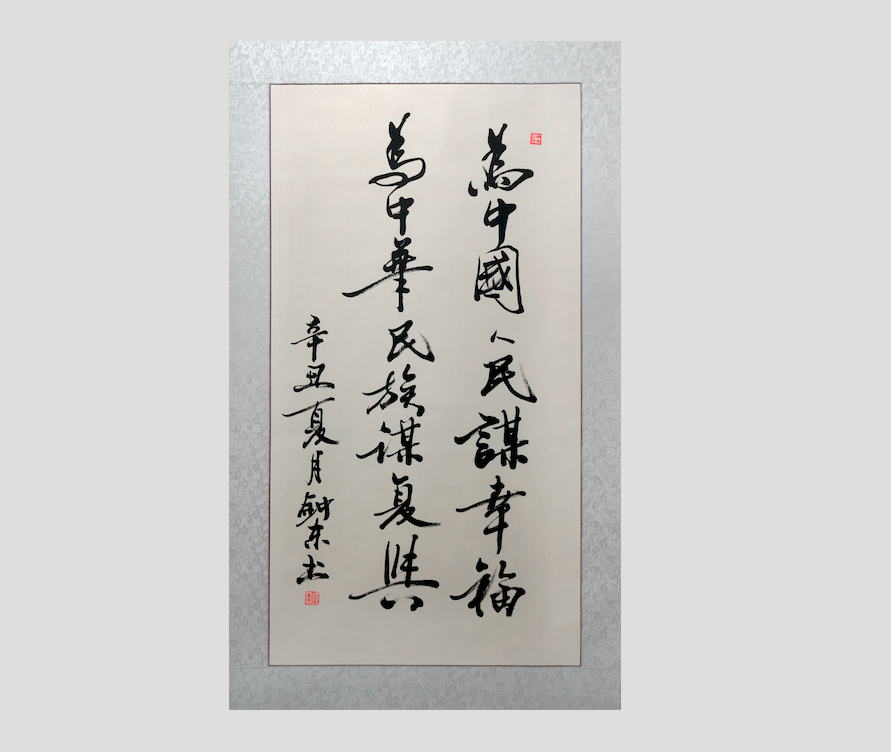 為中國人民謀幸福
為中華民族谋复興
辛丑夏月 东书